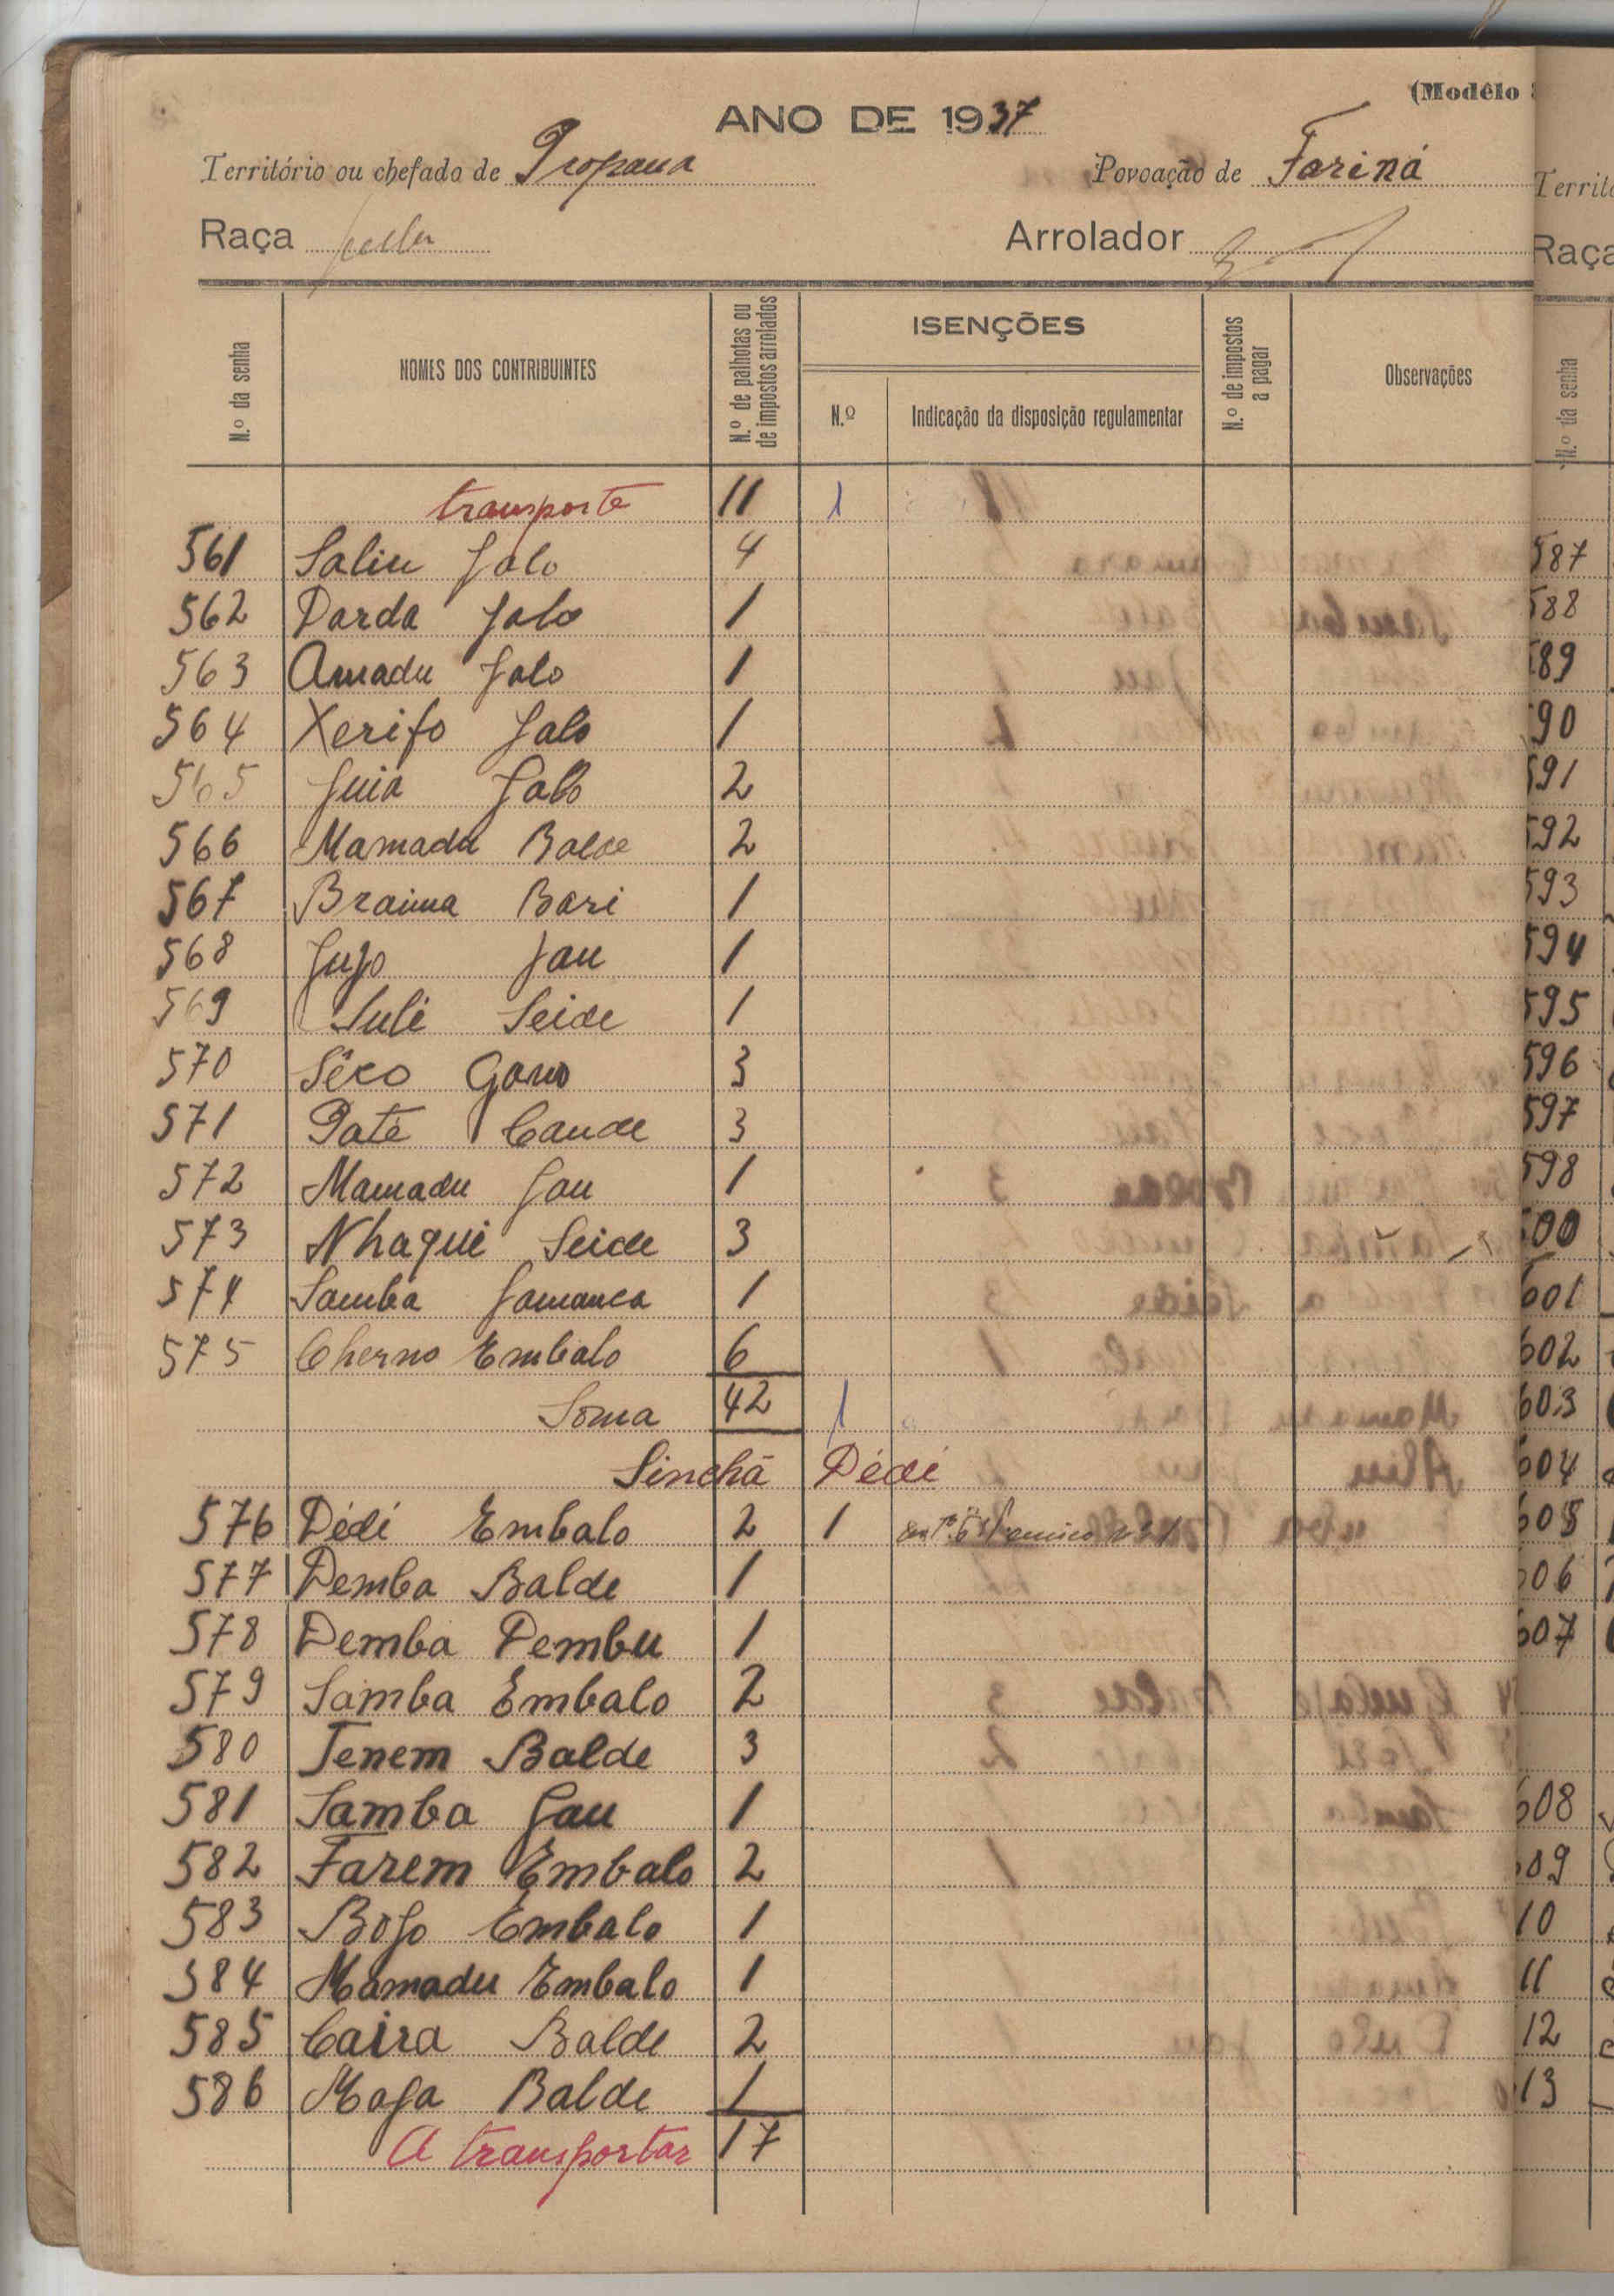 (Modêlo
ANO DE 1937
Território ou chefado de Propana Povoação de Fariná
Raça Arrolador
N.º da senha
NOMES DOS CONTRIBUINTES
N.º de palhotas ou de impostos arrolados
ISENÇÕES
N.º
Indicação da disposição regulamentar
N.º de impostos a pagar
Observações
transporte 11 1
561 Saliu Jalo 4
562 Darda Jalo 1
563 Amadu Jalo 1
564 Xerifo Jalo 1
565 Juia Jalo 2
566 Mamadu Balde 2
567 Braima Bari 1
568 Jujo Jau 1
569 Suli Seide 1
570 Sêco Gano 3
571 Paté Cande 3
572 Mamadu Jau 1
573 Nhaqui Seide 3
574 Samba Jamanca 1
575 Cherno Embalo 6
Soma 42 1
Sinchã Dédi
576 Dédi Embalo 2 1
577 Demba Balde 1
578 Demba Dembu 1
579 Samba Embalo 2
580 Tenem Balde 3
581 Samba Jau 1
582 Farem Embalo 2
583 Bojo Embalo 1
584 Mamadu Embalo 1
585 Caira Balde 2
586 Maja Balde 1
A transportar 17
Territ
Raça
N.º da senha
587
588
589
590
591
592
593
594
595
596
597
598
600
601
602
603
604
605
606
607
608
609
10
11
12
13